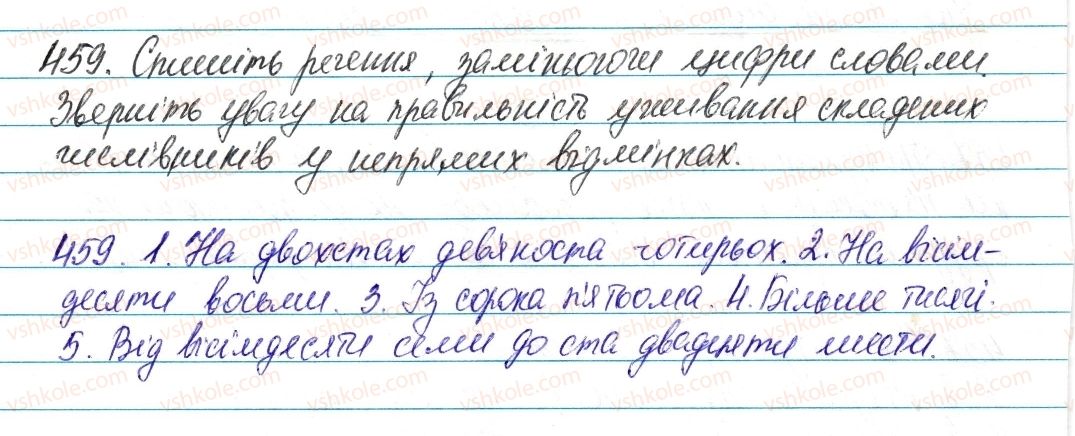 459. Спишіть речення, замінюючи цифри словами.
Зверніть увагу на правильність уживання складених
числівників у непрямих відмінках.
459. 1. На двохстах дев'яноста чотирьох. 2. На вісім-
десяти восьми. 3. Із сорока п'ятьома. 4. Більше тисячі.
5. Від вісімдесяти семи до ста двадцяти шести.